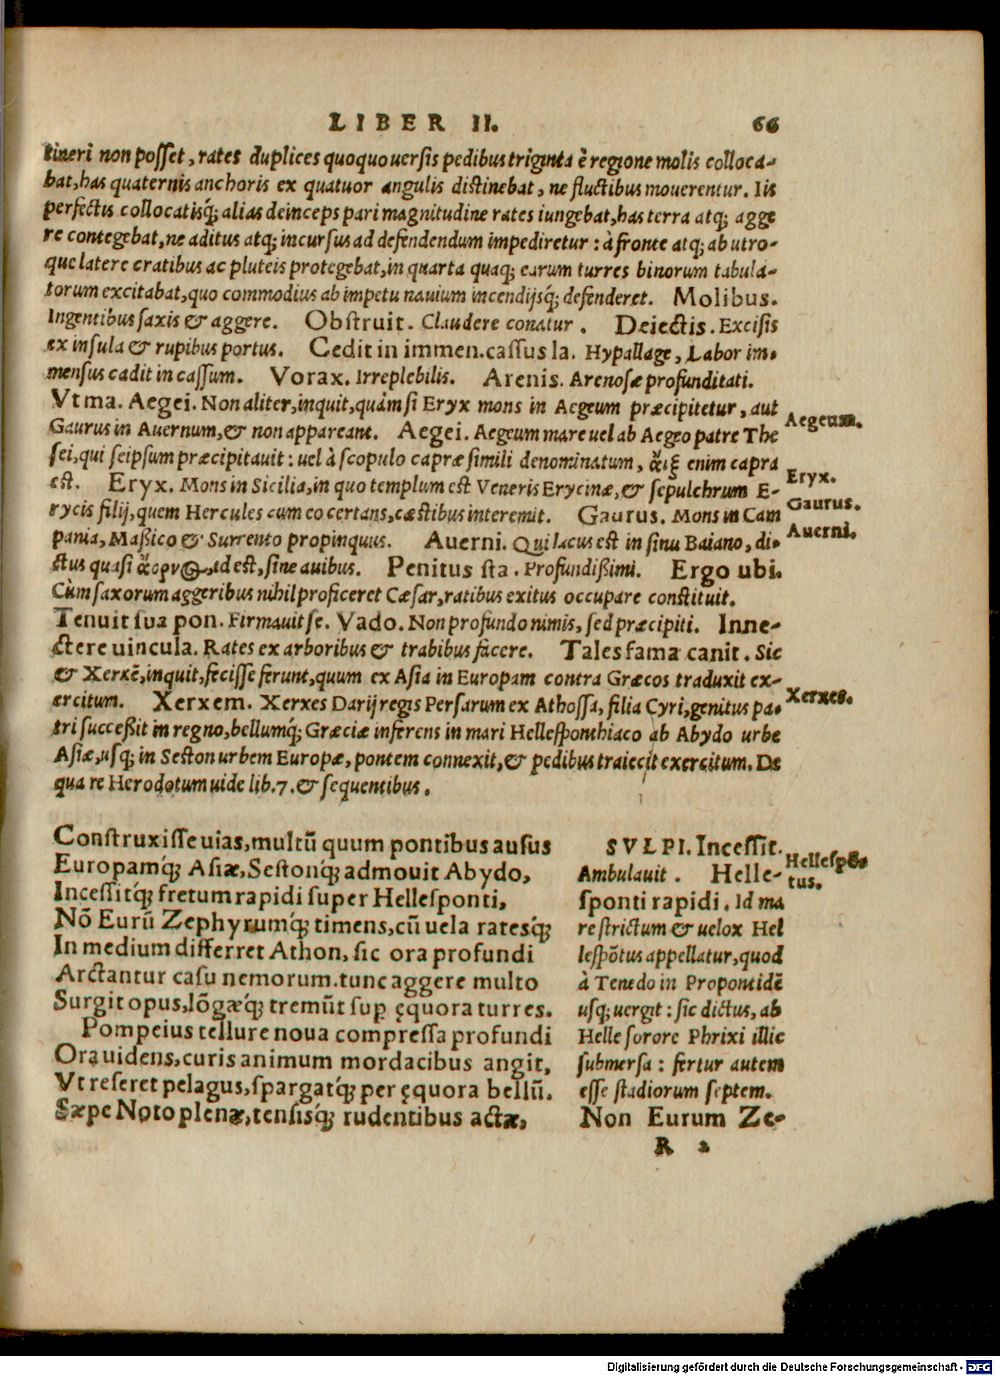 LIBER II. 66
tineri non posset, rates duplices quoquouersis pedibus triginta è regione molis colloca-
bat, has quaternis anchoris ex quatuor angulis distinebat, ne fluctibus mouerentur. Iis
perfectis collocatisq́; alias deinceps pari magnitudine rates iungebat, has terra atq; agge
re contegebat, ne aditus atq; incursus ad defendendum impediretur: à fronte atq; ab utro-
que latere cratibus ac pluteis protegebat, in quarta quaq; earum turres binorum tabula-
torum excitabat, quo commodius ab impetu nauium incendijsq́; defenderet. Molibus.
Ingentibus saxis & aggere. Obstruit. Claudere conatur. Deiectis. Excisis
ex insula & rupibus portus. Cedit in immen. cassus la. Hypallage, Labor im-
mensus cadit in cassum. Vorax. Irreplebilis. Arenis. Arenosæ profunditati.
Vt ma. Aegei. Non aliter, inquit, quàm si Eryx mons in Aegeum præcipitetur, aut
Aegeum.
Gaurus in Auernum, & non appareant. Aegei. Aegeum mare uel ab Aegeo patre The
sei, qui seipsum præcipitauit: uel à scopulo capræ simili denominatum, enim capra
est. Eryx. Mons in Sicilia, in quo templum est Veneris Erycinæ, & sepulchrum E-
Eryx.
rycis filij, quem Hercules cum eo certans, cæstibus interemit. Gaurus. Mons in Cam
Gaurus.
pania, Maßico & Surrento propinquus. Auerni. Qui lacus est in sinu Baiano, di-
Auerni.
ctus quasi id est, sine auibus. Penitus sta. Profundißimi. Ergo ubi.
Cùm saxorum aggeribus nihil proficeret Cæsar, ratibus exitus occupare constituit.
Tenuit sua pon. Firmauit se. Vado. Non profundo nimis, sed præcipiti. Inne-
ctere uincula. Rates ex arboribus & trabibus facere. Tales fama canit. Sic
& Xerxē, inquit, fecisse ferunt, quum ex Asia in Europam contra Græcos traduxit ex-
ercitum. Xerxem. Xerxes Darij regis Persarum ex Athossa, filia Cyri, genitus pa-
Xerxes.
tri successit in regno, bellumq́; Græciæ inferens in mari Hellesponthiaco ab Abydo urbe
Asiæ, usq; in Seston urbem Europæ, pontem connexit, & pedibus traiecit exercitum. De
qua re Herodotum uide lib.7. & sequentibus.
Construxisse uias, multū quum pontibus ausus
Europamq́; Asiæ, Sestonq́; admouit Abydo,
Incessitq́; fretum rapidi super Hellesponti,
Nō Eurū Zephyrumq́; timens, cū uela ratesq́;
In medium differret Athon, sic ora profundi
Arctantur casu nemorum. tunc aggere multo
Surgit opus, lōgæq́; tremūt sup ęquora turres.
Pompeius tellure noua compressa profundi
Ora uidens, curis animum mordacibus angit,
Vt reseret pelagus, spargatq́; per ęquora bellū.
Sæpe Noto plenæ, tensisq́; rudentibus actæ,
SVLPI. Incessit.
Ambulauit. Helle-
Hellespō-
tus.
sponti rapidi. Id ma
re strictum & uelox Hel
lespōtus appellatur, quod
à Tenedo in Propontidē
usq; uergit: sic dictus, ab
Helle sorore Phrixi illic
submersa: fertur autem
esse stadiorum septem.
Non Eurum Ze-
R 2
Digitalisierung gefördert durch die Deutsche Forschungsgemeinschaft - DFG